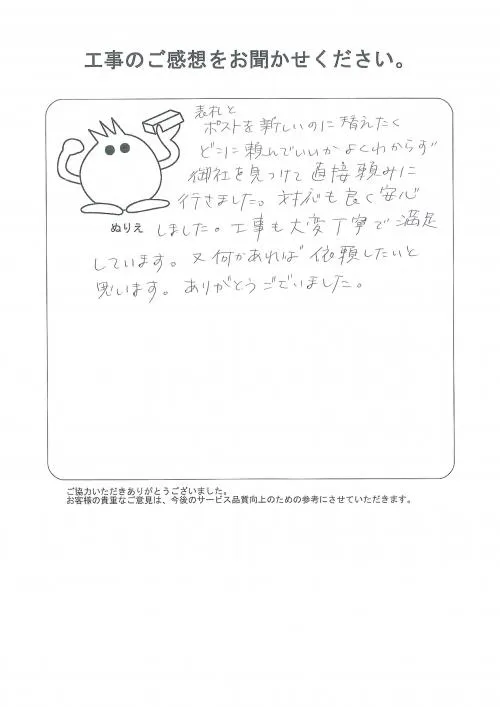 工事のご感想をお聞かせください。
表札と
ポストを新しいのに替えたく
どこに頼んでいいかよくわからず
御社を見つけて直接頼みに
行きました。対応も良く安心
ぬりえ
しました。工事も大変丁寧で満足
しています。又何かあれば依頼したいと
思います。ありがとうございました。
ご協力いただきありがとうございました。
お客様の貴重なご意見は、今後のサービス品質向上のための参考にさせていただきます。